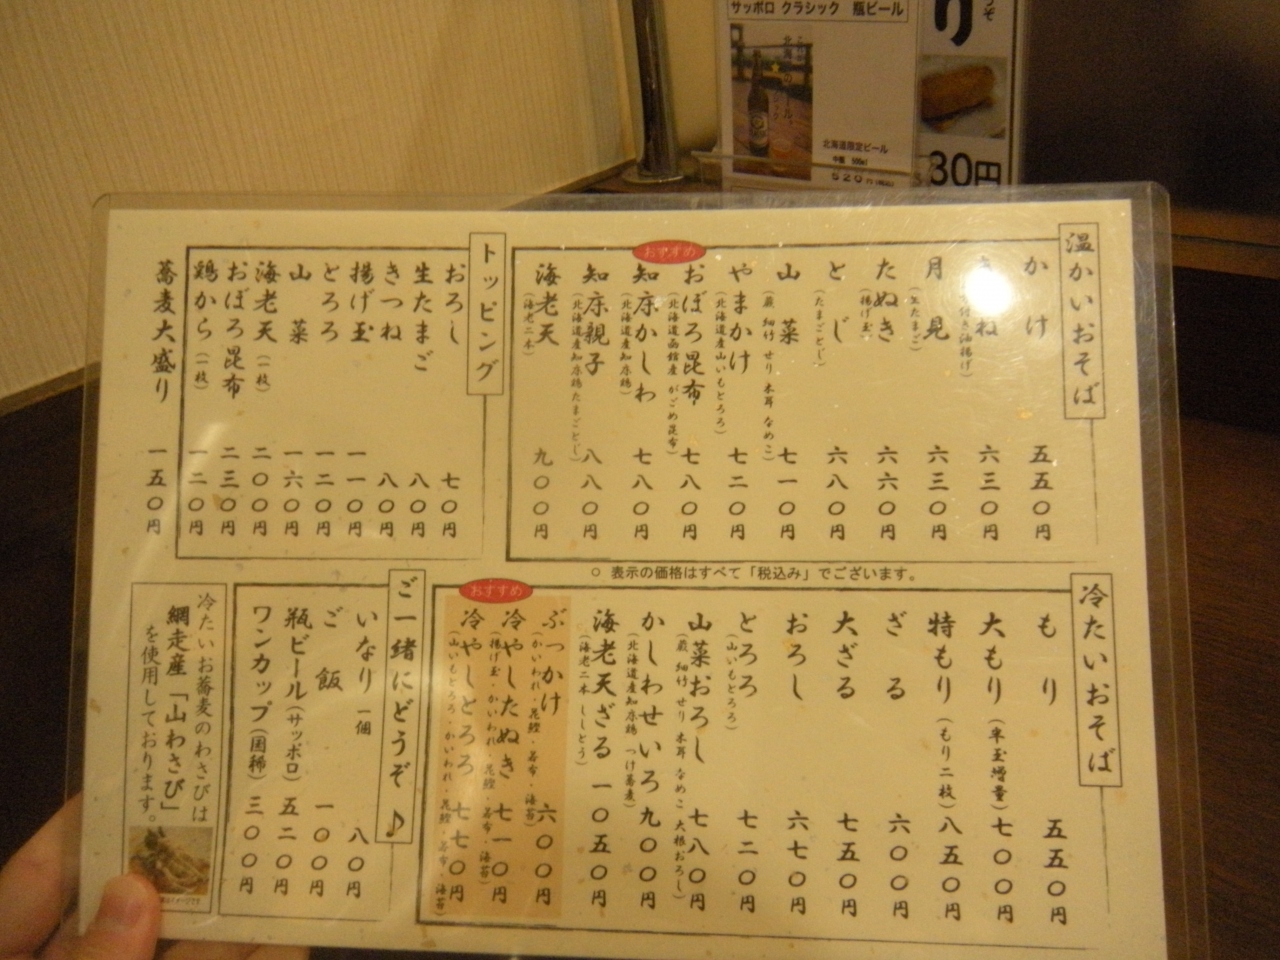 サッポロ クラシック 瓶ビール
北海道限定ビール
中瓶 500ml
520円
り
30円
温かいおそば
かけ 五五〇円
六三〇円
月見 (生たまご) 六三〇円
たぬき (揚げ玉) 六六〇円
とじ (たまごとじ) 六八〇円
山菜 (蕨 細竹 せり 木耳 なめこ) 七一〇円
やまかけ (北海道産山いもとろろ) 七二〇円
おすすめ
おぼろ昆布 (北海道函館産 がごめ昆布) 七八〇円
知床かしわ (北海道産知床鶏) 七八〇円
知床親子 (北海道産知床鶏 たまごとじ) 八八〇円
海老天 (海老二本) 九〇〇円
トッピング
おろし 七〇円
生たまご 八〇円
きつね 八〇円
揚げ玉 一一〇円
とろろ 一二〇円
山菜 一六〇円
海老天 (一枚) 二〇〇円
おぼろ昆布 二三〇円
鶏から (一枚) 一二〇円
蕎麦大盛り 一五〇円
○ 表示の価格はすべて「税込み」でございます。
冷たいおそば
もり 五五〇円
大もり (半玉増量) 七〇〇円
特もり (もり二枚) 八五〇円
ざる 六〇〇円
大ざる 七五〇円
おろし 六七〇円
とろろ (山いもとろろ) 七二〇円
山菜おろし (蕨 細竹 せり 木耳 なめこ 大根おろし) 七八〇円
かしわせいろ (北海道産知床鶏 つけ蕎麦) 九〇〇円
海老天ざる (海老二本 ししとう) 一〇五〇円
おすすめ
ぶっかけ (かいわれ・花鰹・若布・海苔) 六〇〇円
冷やしたぬき (揚げ玉・かいわれ・花鰹・若布・海苔) 七一〇円
冷やしとろろ (山いもとろろ・かいわれ・花鰹・若布・海苔) 七七〇円
ご一緒にどうぞ♪
いなり 一個 八〇円
ご飯 一〇〇円
瓶ビール(サッポロ) 五二〇円
ワンカップ(国稀) 三〇〇円
冷たいお蕎麦のわさびは
網走産「山わさび」
を使用しております。